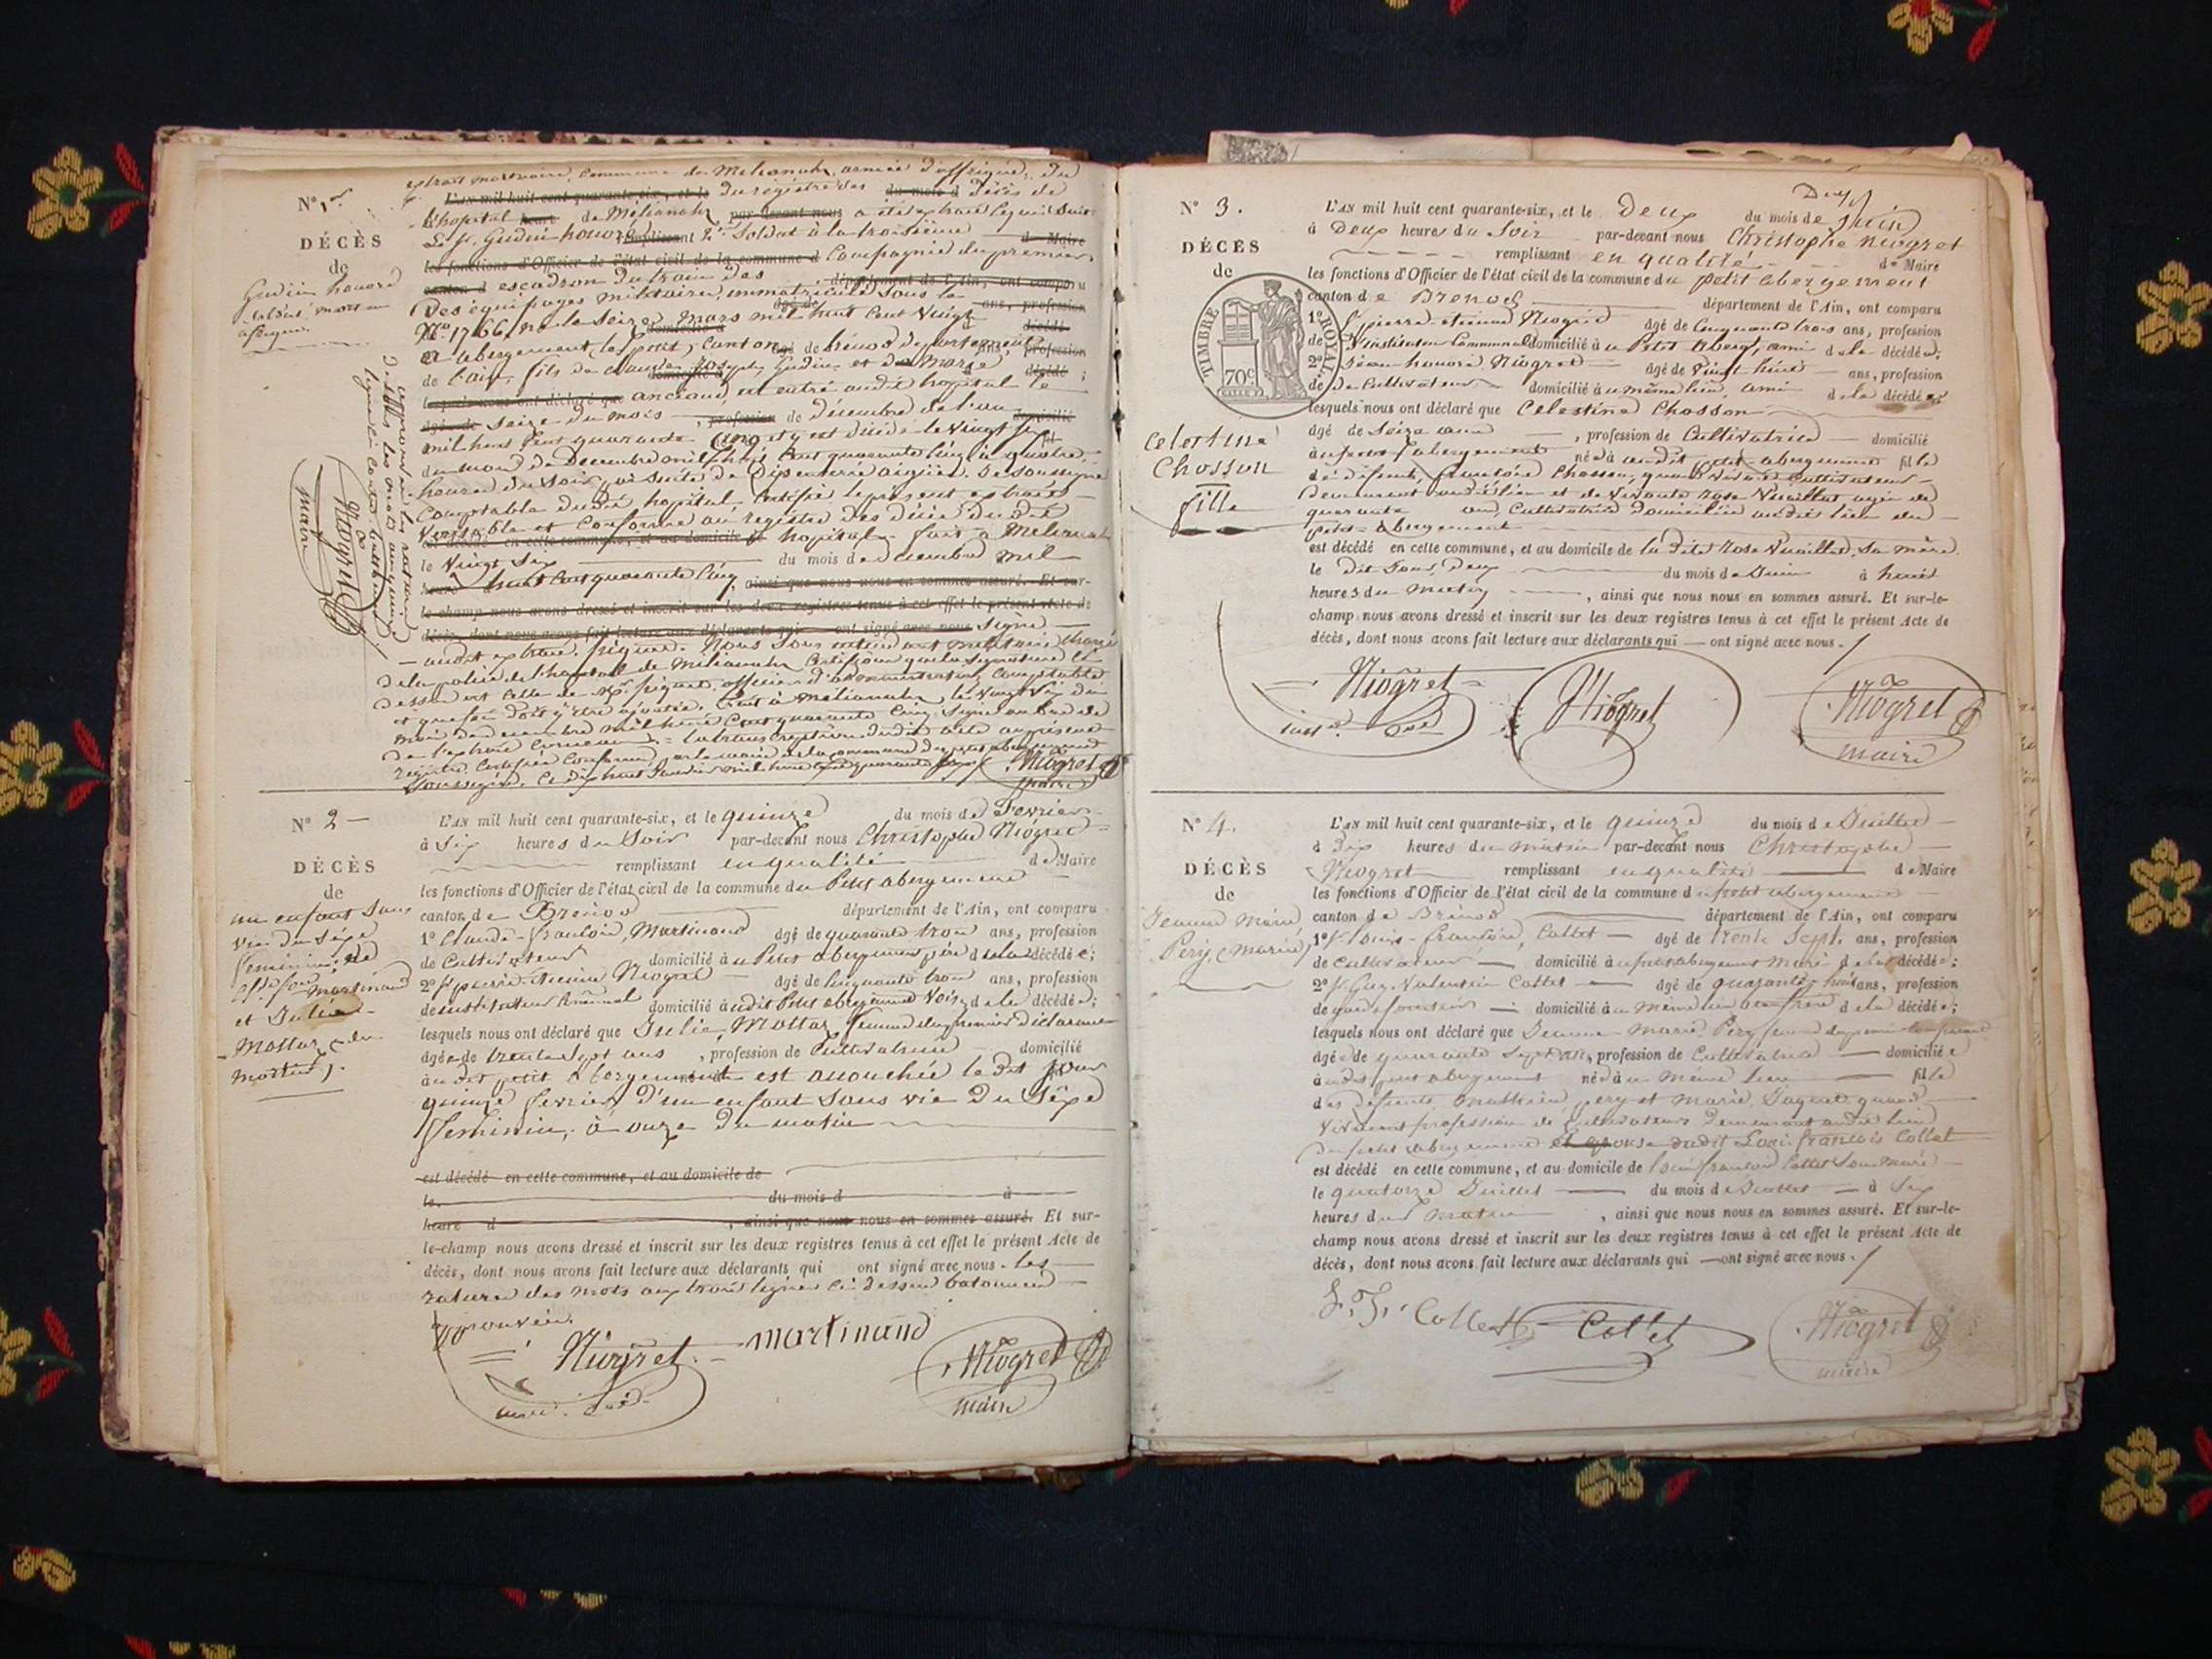 extrait mortuaire, Commune de Milianah, armée d'affrique, du
N° 1er L'AN mil huit cent quarante-six, et le du régistre des du mois d décès de
l'hopital heure de Milianah par-devant nous a été extrait ce qui suit
Le Sr. Gudin honoré remplissant 2e Soldat à la troisième de Maire
DÉCÈS
de
les fonctions d'Officier de l'état civil de la commune d Compagnie du premier
canton d escadron du train des département de l'Ain, ont comparu
Gudin honoré
soldat mort en
afrique.
Des équipages militaires, immatriculé sous le âgé de ans, profession
N° 1766, né le seize mars mil huit cent vingt domicilié à décédé
à abergement (le petit) canton de brénod département ans, profession
de l'ain, fils de claude Joseph Gudin et de Marie décédé ;
lesquels nous ont déclaré que anceaud, est entré audit hopital le
âgé de seize du mois , profession de décembre de l'an domicilié
mil huit cent quarante cinq et y est décédé le vingt six
du mois de Décembre mil huit cent quarante cinq à quatre
heures du soir, par suite de Dipenterie aigüe. Le soussigné
Comptable dudit hopital, certifie le présent extrait
Véritable et Conforme au registre des décès dudit
est décédé en cette commune, et au domicile de hopital. fait à Milianah
le Vingt Six du mois de decembre mil
heure huit cent quarante cinq, ainsi que nous nous en sommes assuré. Et sur-
le champ nous avons dressé et inscrit sur les deux registres tenus à cet effet le présent Acte de
décès, dont nous avons fait lecture aux déclarants qui ont signé avec nous Signé
audit extrait. piquet. Nous Sous intendant militaire chargé
de la police de l'hopital de Milianah certifions que la signature ci
dessus est celle de Mr. piquet officier d'administration comptable
et que foi doit y être ajoutée. fait à Milianah, le Vingt Six du
mois de decembre mil huit cent quarante cinq
Niogret
maire
Niogret
maire
N° 2
L'AN mil huit cent quarante-six, et le quinze du mois de Fevrier
à Six heures du Soir par-devant nous Christophe Niogret
remplissant en qualité de Maire
DÉCÈS
de
les fonctions d'Officier de l'état civil de la commune du Petit abergement
un enfant sans
vie du séxe
feminin, de
martinand
et Julie
Mottaz
canton de Brénod département de l'Ain, ont comparu
1° Claude-françois, Martinand âgé de quarante trois ans, profession
de Cultivateur domicilié à u Petit abergement, père de la décédée ;
2° Sr pierre-etienne Niogret âgé de Cinquante trois ans, profession
de instituteur Communal domicilié à udit Petit abergement Voisin de la décédée ;
lesquels nous ont déclaré que Julie Mottaz, femme du premier déclarant
âgée de trente sept ans , profession de Cultivatrice domicilié
à udit petit abergement est accouchée le dit jour
quinze fevrier d'un enfant sans vie du Séxe
feminin, à onze du matin
est décédé en cette commune, et au domicile de
le du mois d à
heure d , ainsi que nous nous en sommes assuré. Et sur-
le-champ nous avons dressé et inscrit sur les deux registres tenus à cet effet le présent Acte de
décès, dont nous avons fait lecture aux déclarants qui ont signé avec nous. les
ratures des mots aux trois lignes ci dessus batonnées
approuvées.
Niogret martinand Niogret
maire
N° 3.
L'AN mil huit cent quarante-six, et le Deux du mois de Juin
à Deux heures du Soir par-devant nous Christophe Niogret
remplissant en qualité de Maire
DÉCÈS
de
les fonctions d'Officier de l'état civil de la commune du petit abergement
canton de Brenod département de l'Ain, ont comparu
TIMBRE ROYAL
70c
1° Sr pierre-etienne Niogret âgé de Cinquante trois ans, profession
de d'instituteur Communal domicilié à u Petit Aberg.t, ami de la décédée ;
2° Jean honoré Niogret âgé de Vingt huit ans, profession
de de Cultivateur domicilié à u même lieu, ami de la décédée
lesquels nous ont déclaré que Celestine Chosson
Celestine
Chosson
fille
âgé de Seize ans , profession de Cultivatrice domicilié
à u petit abergement née à audit petit abergement fille
de défunt françois Chosson, quand vivait Cultivateur
demeurant audit lieu et de vivante Rose Vuaillat agée de
quarante ans, Cultivatrice domiciliée audit lieu du
petit abergement
est décédé en cette commune, et au domicile de la dite Rose Vuaillat, sa mère.
le dit Jour, Deux du mois de Juin à huit
heures du matin , ainsi que nous nous en sommes assuré. Et sur-le-
champ nous avons dressé et inscrit sur les deux registres tenus à cet effet le présent Acte de
décès, dont nous avons fait lecture aux déclarants qui ont signé avec nous.
Niogret Niogret Niogret
maire
N° 4.
L'AN mil huit cent quarante-six, et le quinze du mois de Juillet
à Dix heures du matin par-devant nous Christophe
Niogret remplissant en qualité de Maire
DÉCÈS
de
les fonctions d'Officier de l'état civil de la commune du petit abergement
Jeanne Marie
Pery (Mariée)
canton de Brénod département de l'Ain, ont comparu
1° Sr louis-françois, Collet âgé de trente Sept ans, profession
de cultivateur domicilié à u petit abergement Mari de la décédée ;
2° Sr Guy-Valentin Collet âgé de quarante-huit ans, profession
de garde forestier domicilié à u même lieu beau frère de la décédée ;
lesquels nous ont déclaré que Jeanne Marie Pery femme du premier comparant
âgée de quarante Sept ans, profession de Cultivatrice domiciliée
à udit petit abergement née à u même lieu fille
des défunts Mathieu pery et Marie Jaquet quand
vivaient profession de Cultivateurs demeurant audit lieu
du petit abergement et épouse dudit Louis françois Collet
est décédé en cette commune, et au domicile de louis françois Collet son mari
le quatorze Juillet du mois de Juillet à Six
heures du Matin , ainsi que nous nous en sommes assuré. Et sur-le-
champ nous avons dressé et inscrit sur les deux registres tenus à cet effet le présent Acte de
décès, dont nous avons fait lecture aux déclarants qui ont signé avec nous.
L. F. Collet Collet Niogret
maire